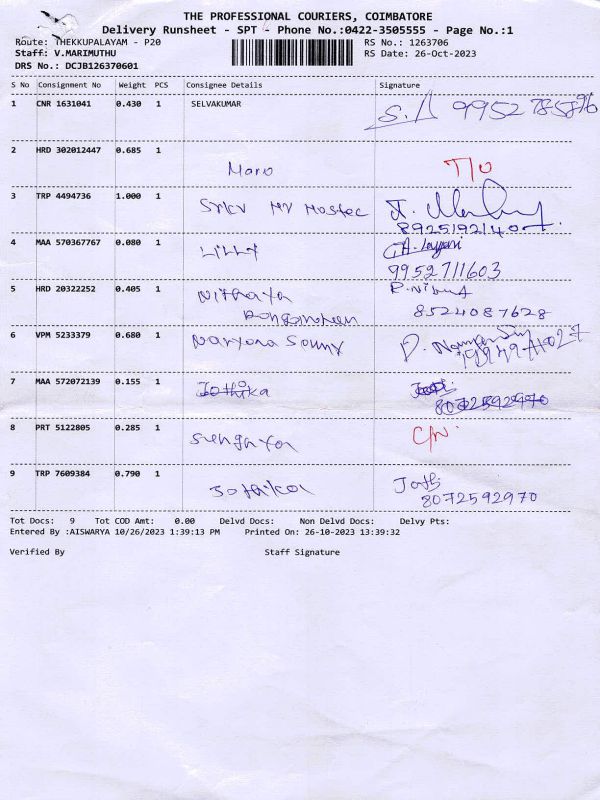 THE PROFESSIONAL COURIERS, COIMBATORE
Delivery Runsheet - SPT - Phone No.:0422-3505555 - Page No.:1
Route: THEKKUPALAYAM - P20 RS No.: 1263706
Staff: V.MARIMUTHU RS Date: 26-Oct-2023
DRS No.: DCJB126370601
S No Consignment No Weight PCS Consignee Details Signature
1 CNR 1631041 0.430 1 SELVAKUMAR
2 HRD 302012447 0.685 1
Mano T/O
3 TRP 4494736 1.000 1
8925192140
4 MAA 570367767 0.080 1
LILLY
9952711603
5 HRD 20322252 0.405 1
Nithaya 8524087628
6 VPM 5233379 0.680 1
7 MAA 572072139 0.155 1
Jothika
8072592970
8 PRT 5122805 0.285 1
9 TRP 7609384 0.790 1
8072592970
Tot Docs: 9 Tot COD Amt: 0.00 Delvd Docs: Non Delvd Docs: Delvy Pts:
Entered By :AISWARYA 10/26/2023 1:39:13 PM Printed On: 26-10-2023 13:39:32
Verified By Staff Signature